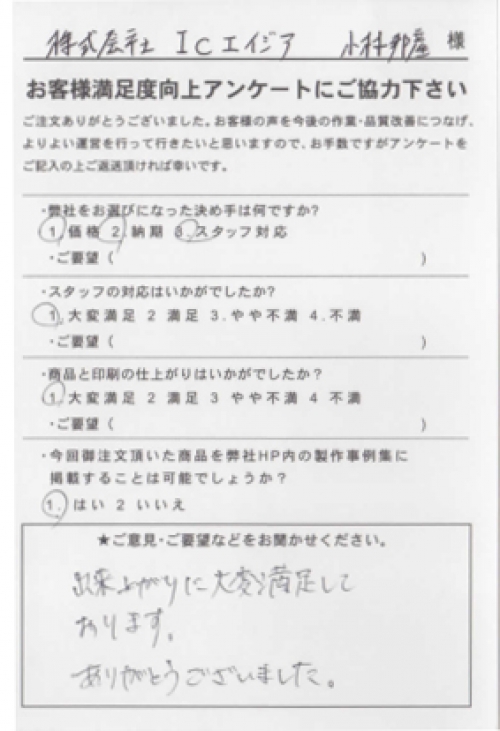 株式会社 ICエイジア 小林邦彦 様
お客様満足度向上アンケートにご協力下さい
ご注文ありがとうございました。お客様の声を今後の作業・品質改善につなげ、
よりよい運営を行って行きたいと思いますので、お手数ですがアンケートを
ご記入の上ご返送頂ければ幸いです。
・弊社をお選びになった決め手は何ですか?
1.価格 2.納期 3.スタッフ対応
・ご要望( )
・スタッフの対応はいかがでしたか?
1.大変満足 2 満足 3.やや不満 4.不満
・ご要望( )
・商品と印刷の仕上がりはいかがでしたか?
1.大変満足 2 満足 3 やや不満 4 不満
・ご要望( )
・今回御注文頂いた商品を弊社HP内の製作事例集に
掲載することは可能でしょうか?
1.はい 2 いいえ
★ご意見・ご要望などをお聞かせください。
出来上がりに大変満足して
おります。
ありがとうございました。